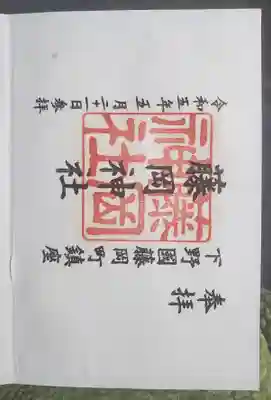 奉拝
下野國藤岡町鎮座
藤岡神社
藤岡神社
令和五年五月二十一日参拝